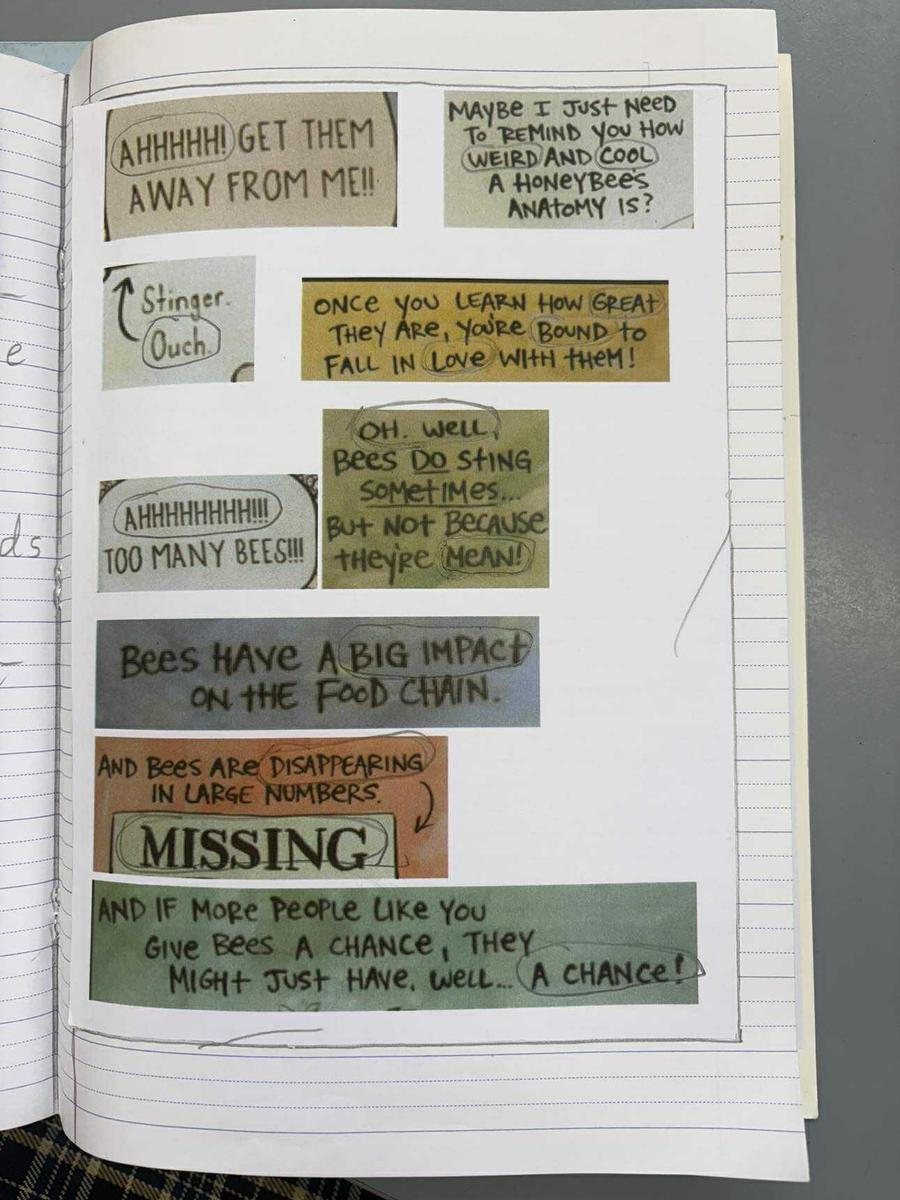 AHHHHH! GET THEM
AWAY FROM ME!!
MAYBE I JUST NEED
TO REMIND YOU HOW
WEIRD AND COOL
A HONEYBEE'S
ANATOMY IS?
Stinger.
Ouch.
ONCE YOU LEARN HOW GREAT
THEY ARE, YOU'RE BOUND TO
FALL IN LOVE WITH THEM!
OH. WELL,
BEES DO STING
SOMETIMES...
BUT NOT BECAUSE
THEY'RE MEAN!
AHHHHHHHH!!!!
TOO MANY BEES!!!
BEES HAVE A BIG IMPACT
ON THE FOOD CHAIN.
AND BEES ARE DISAPPEARING
IN LARGE NUMBERS.
MISSING
AND IF MORE PEOPLE LIKE YOU
GIVE BEES A CHANCE, THEY
MIGHT JUST HAVE, WELL... A CHANCE!
e
ds